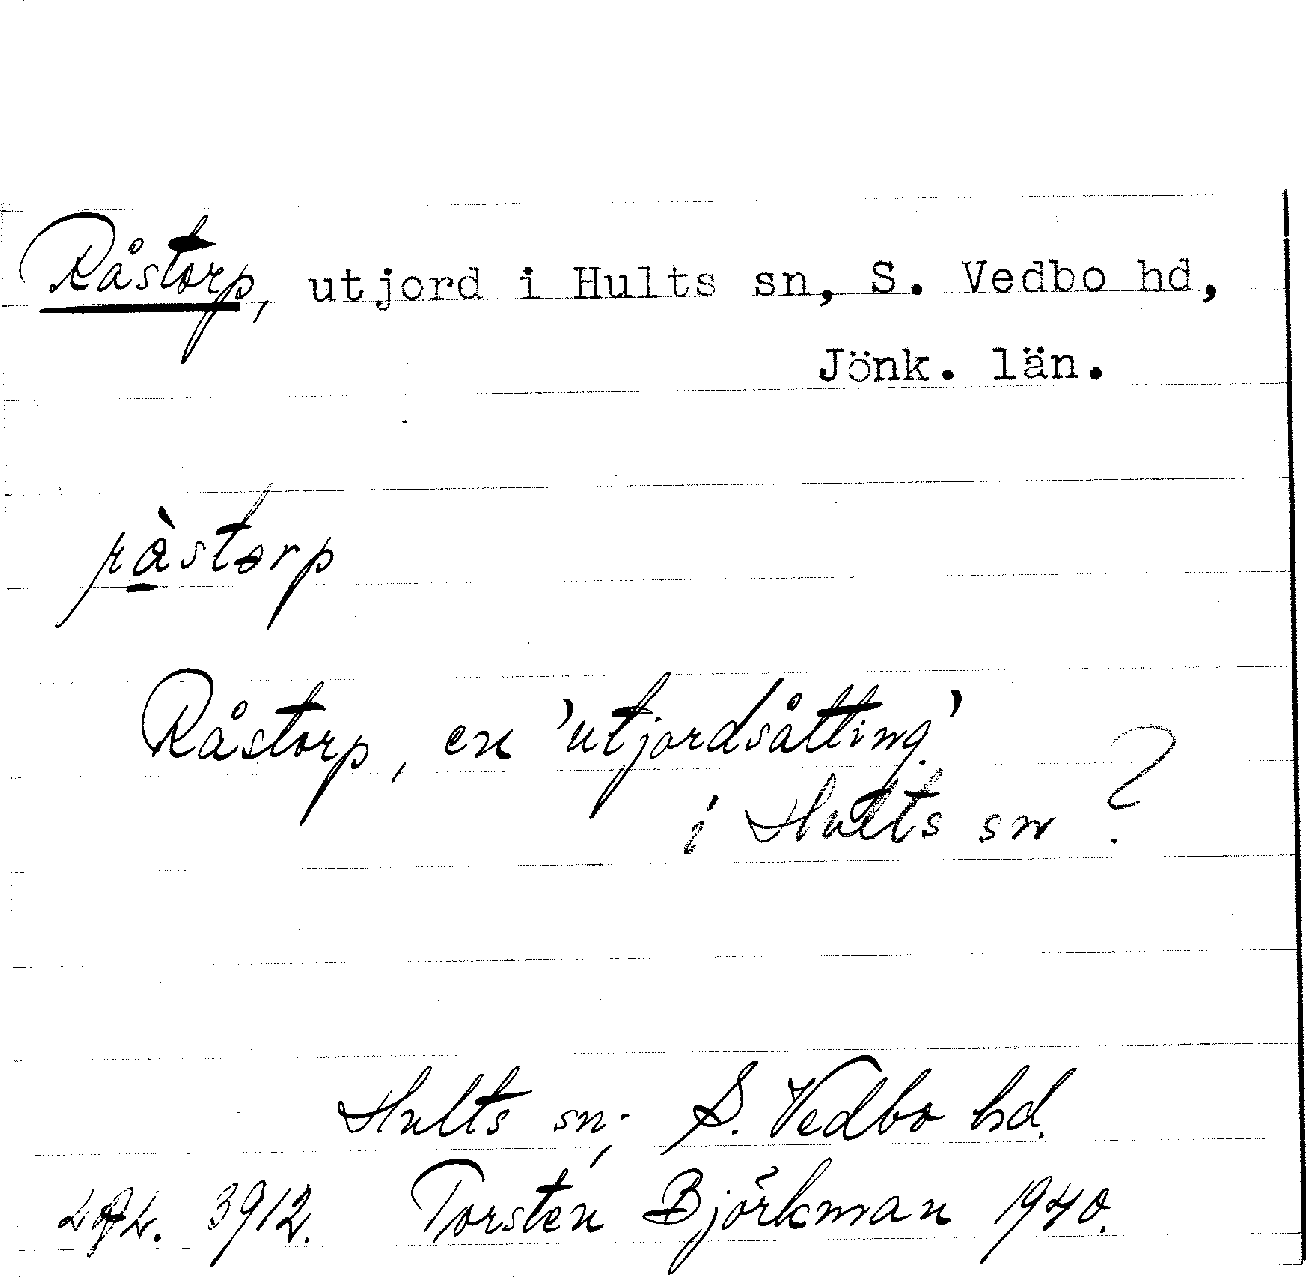 Råstorp, utjord i Hults sn, S. Vedbo hd,
Jönk. län.
råstorp
Råstorp, en 'utjordsåtting'
i Hults sn ?
Hults sn; S. Vedbo hd.
3912. Torsten Björkman 1940.